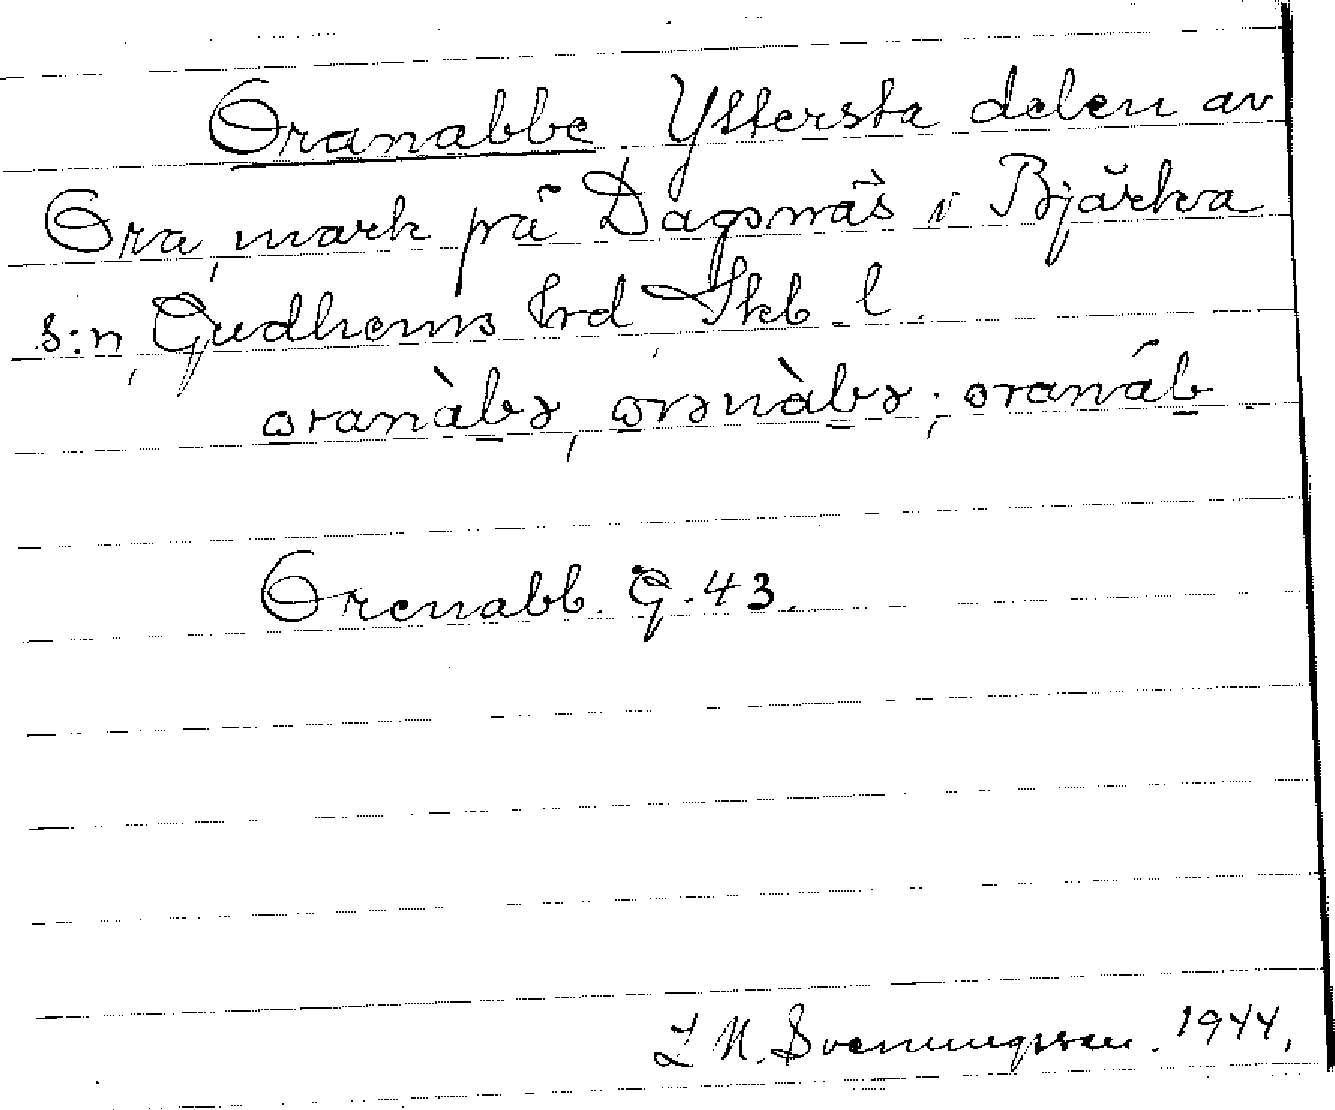 Oranabbe Yttersta delen av
Ora, mark på Dagsnäs i Bjärka
s:n, Gudhems hrd Skb. l.
oranàbə, orənàbə; oranáb
Orenabb. G. 43.
Svenungsson. 1944.